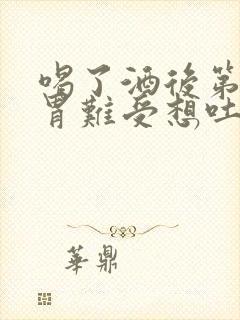 喝了酒後第
胃難受想吐
華鼎